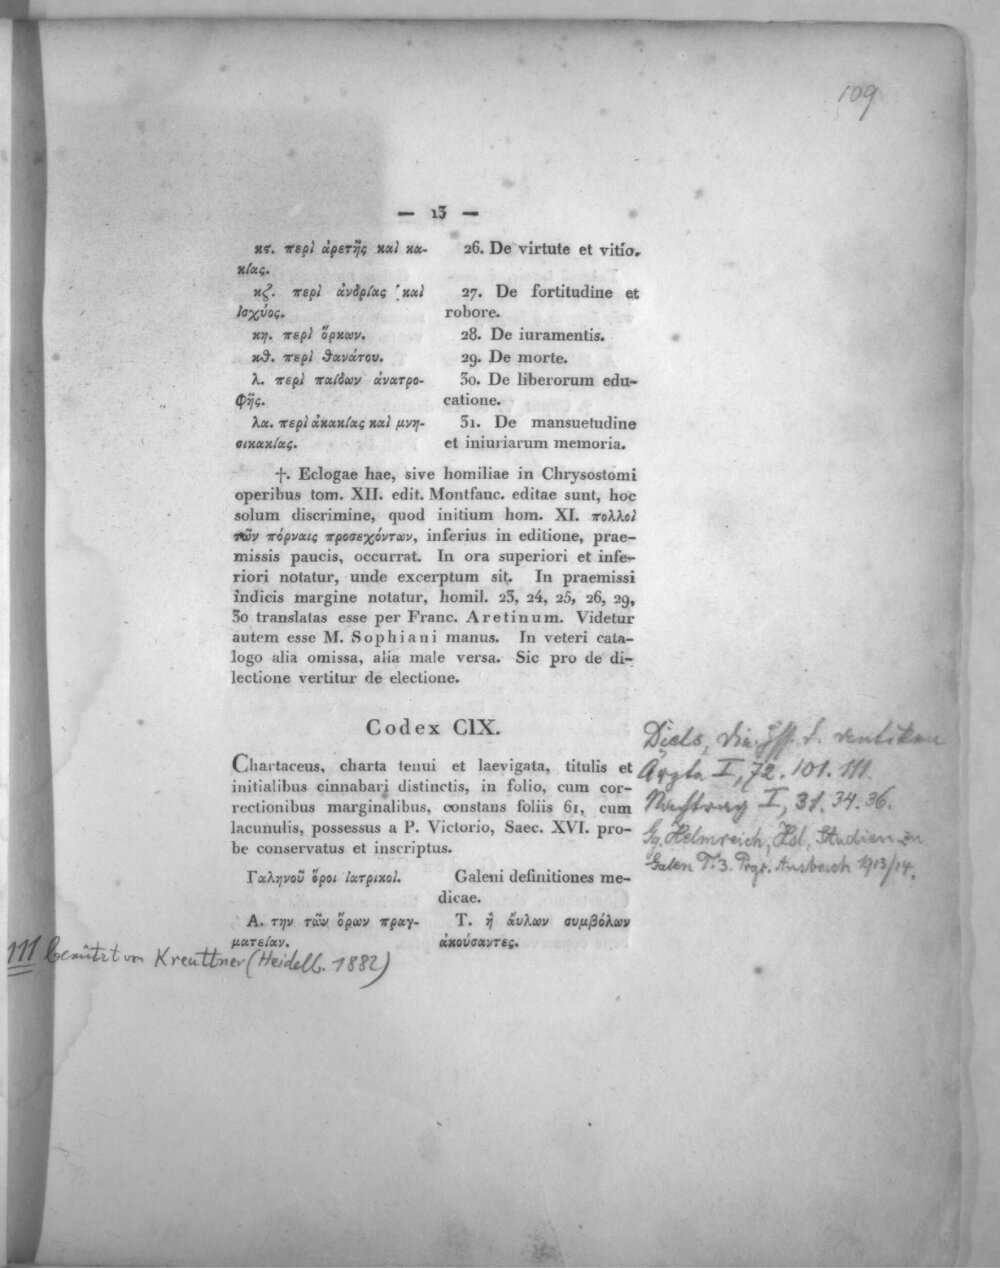 109
— 13 —
κς. περὶ ἀρετῆς καὶ κα-
κίας.
26. De virtute et vitio.
κζ. περὶ ἀνδρίας καὶ
ἰσχύος.
27. De fortitudine et
robore.
κη. περὶ ὅρκων.
28. De iuramentis.
κθ. περὶ θανάτου.
29. De morte.
λ. περὶ παίδων ἀνατρο-
φῆς.
30. De liberorum edu-
catione.
λα. περὶ ἀκακίας καὶ μνη-
σικακίας.
31. De mansuetudine
et iniuriarum memoria.
†. Eclogae hae, sive homiliae in Chrysostomi
operibus tom. XII. edit. Montfauc. editae sunt, hoc
solum discrimine, quod initium hom. XI. πολλοὶ
τῶν πόρναις προσεχόντων, inferius in editione, prae-
missis paucis, occurrat. In ora superiori et infe-
riori notatur, unde excerptum sit. In praemissi
indicis margine notatur, homil. 23, 24, 25, 26, 29,
30 translatas esse per Franc. Aretinum. Videtur
autem esse M. Sophiani manus. In veteri cata-
logo alia omissa, alia male versa. Sic pro de di-
lectione vertitur de electione.
Codex CIX.
Chartaceus, charta tenui et laevigata, titulis et
initialibus cinnabari distinctis, in folio, cum cor-
rectionibus marginalibus, constans foliis 61, cum
lacunulis, possessus a P. Victorio, Saec. XVI. pro-
be conservatus et inscriptus.
Γαληνοῦ ὅροι ἰατρικοί.
Galeni definitiones me-
dicae.
Α. την τῶν ὅρων πραγ-
ματείαν.
Τ. ἢ ἄυλων συμβόλων
ἀκούσαντες.
Diels, die Hss. d. antiken
Ärzte I, 72. 101. 111.
Nachtrag I, 31. 34. 36.
Gg. Helmreich, Hsl. Studien zu
Galen T. 3. Prgr. Ansbach 1913/14.
111 benützt von Kreuttner (Heidelb. 1882)